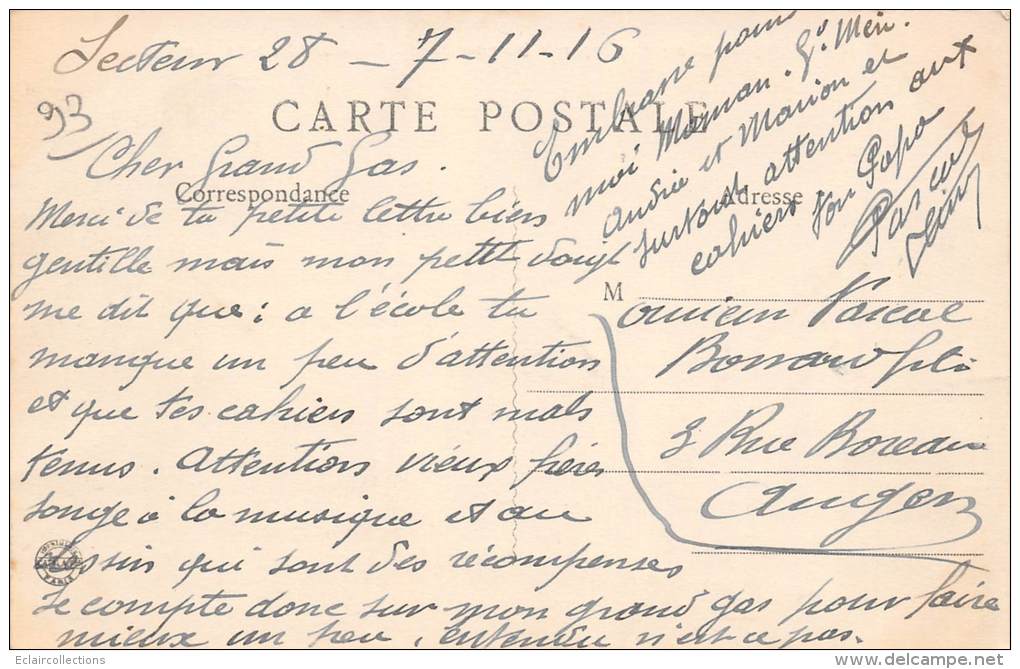 Secteur 28 - 7-11-16
93
CARTE POSTALE
Cher Grand Gas.
Correspondance
Adresse
Merci de ta petite lettre bien
gentille mais mon petit doigt
me dit que : a l'école tu
manque un peu d'attention
et que tes cahiers sont mals
tenus. Attention vieux frère
songe à la musique et au
dessin qui sont des récompenses
Je compte donc sur mon grand gas pour faire
mieux un peu, entendu n'est ce pas.
Embrasse pour
moi Maman. Gd Mère.
André et Marion et
surtout attention aux
cahiers ton Papa
Pascal
M onsieur Pascal
Bonnard fils
3 Rue Boreau
Angers
PARIS
Eclaircollections
http://www.delcampe.net